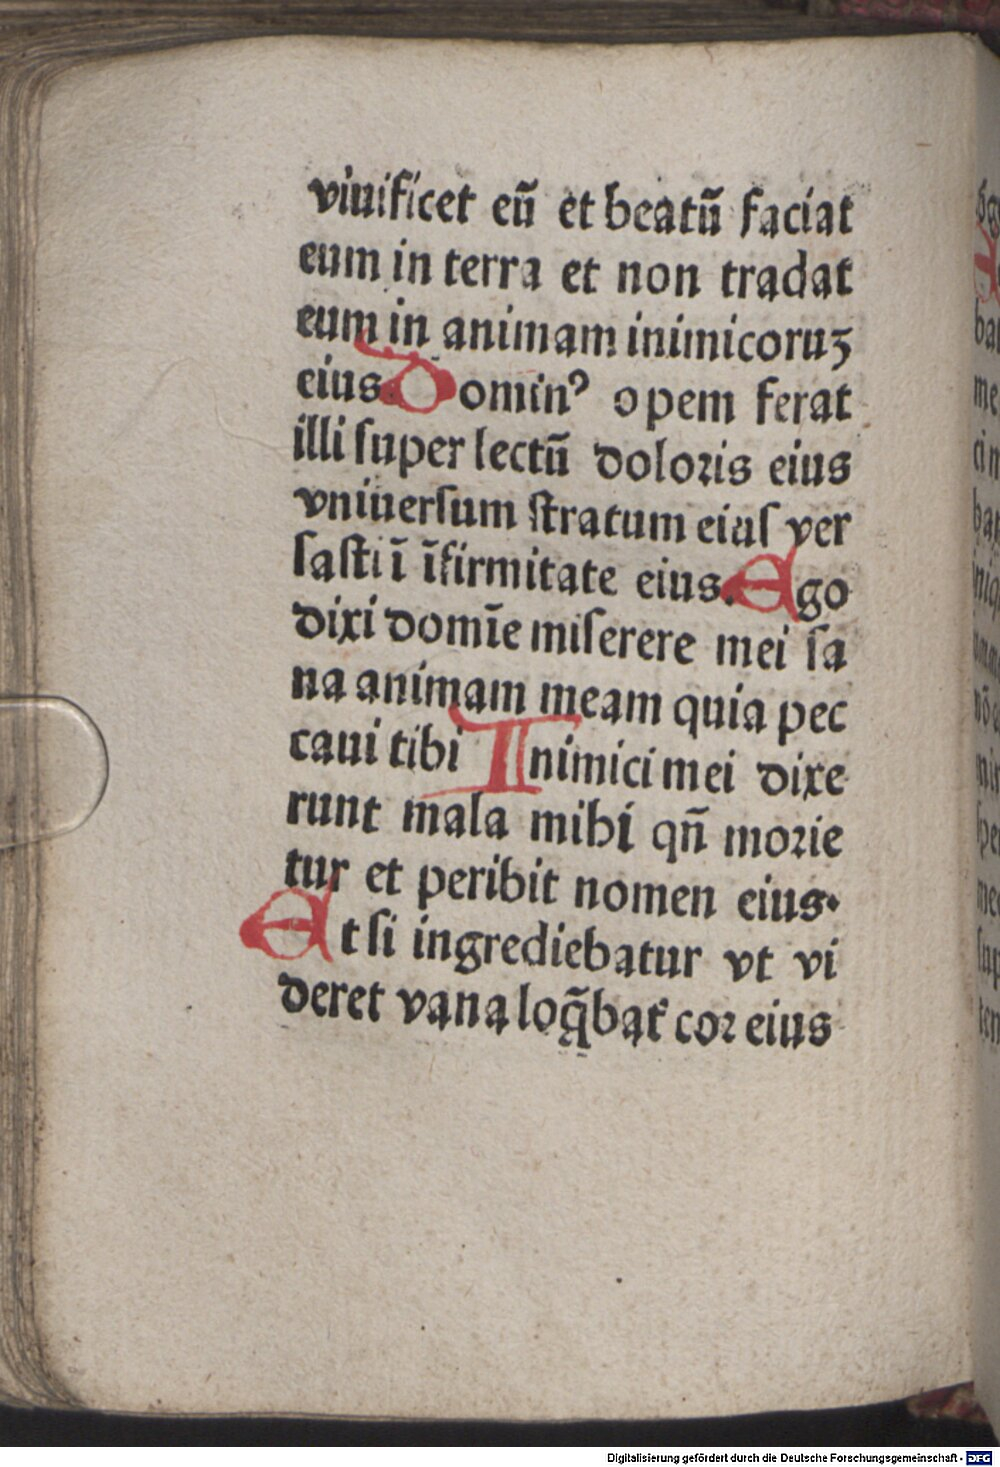 viuificet eū et beatū faciat
eum in terra et non tradat
eum in animam inimicoruꝫ
eius Dominꝰ opem ferat
illi ſuper lectū doloꝛis eius
vniuerſum ſtratum eiuſ ver
ſaſti ī īfirmitate eius. Ego
dixi domīe miſerere mei ſa
na animam meam quia pec
caui tibi Inimici mei dixe
runt mala mihi qn̄ moꝛie
tur et peribit nomen eius.
Et ſi ingrediebatur vt vi
deret vana loq̄bat᷑ coꝛ eius
Digitalisierung gefördert durch die Deutsche Forschungsgemeinschaft - DFG